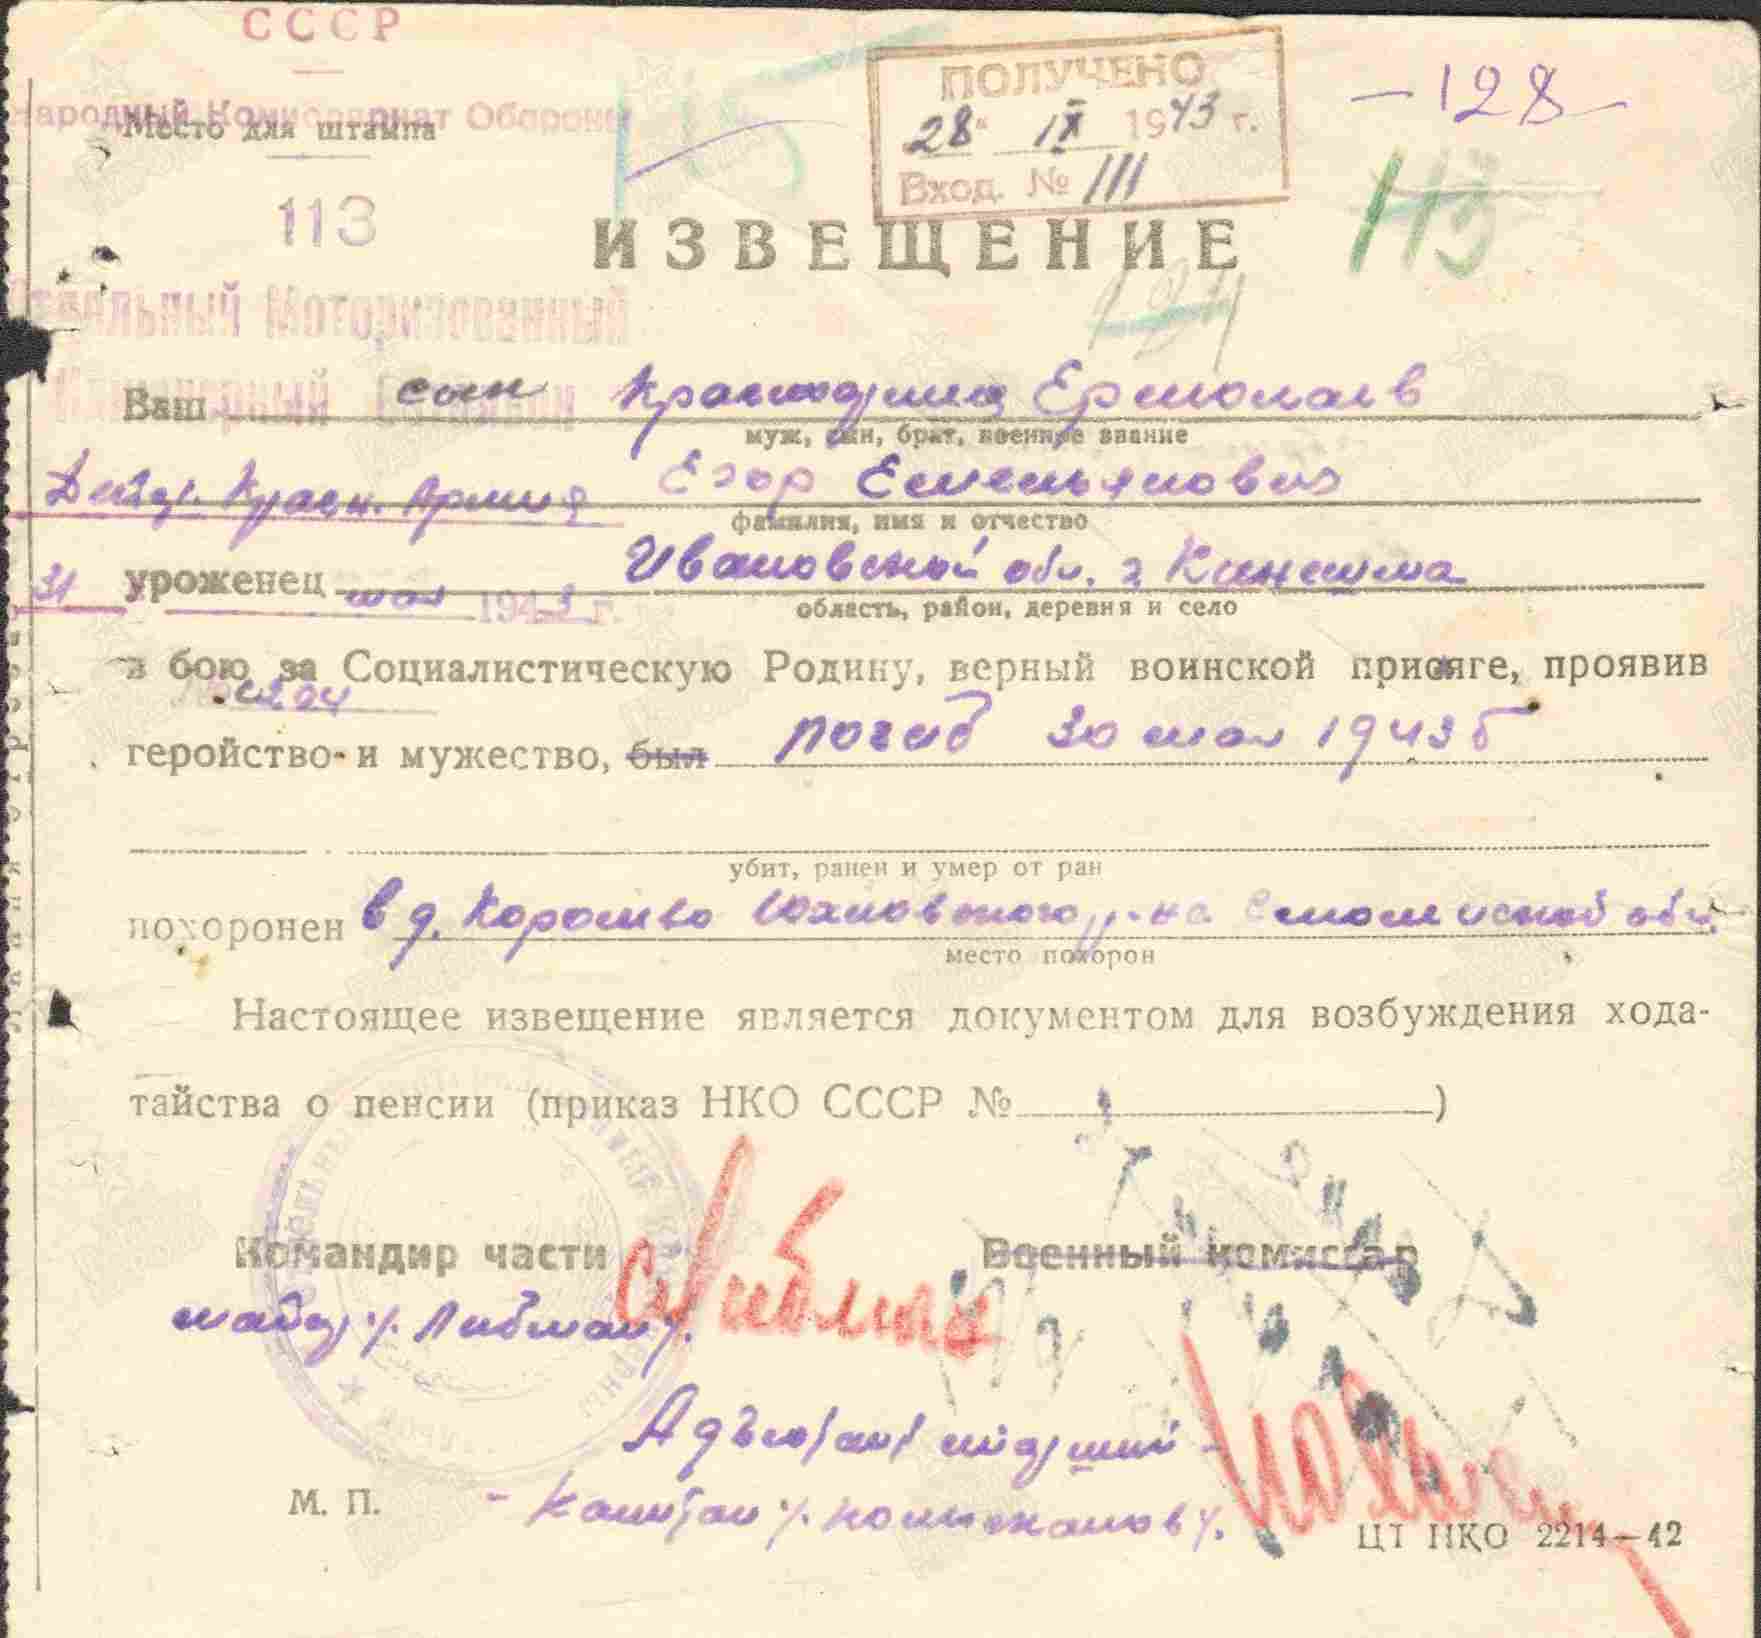 СССР
Народный Комиссариат Обороны
Место для штампа
ПОЛУЧЕНО
28" IX 1943 г.
Вход. № 111
-128-
113
113
ИЗВЕЩЕНИЕ
Отдельный Моторизованный
Инженерный Батальон
Ваш сын Красноармеец Ермолаев
муж, сын, брат, военное звание
Действ. Красн. Армия Егор Емельянович
фамилия, имя и отчество
31 мая 1943 г.
уроженец Ивановской обл. г. Кинешма
область, район, деревня и село
в бою за Социалистическую Родину, верный воинской присяге, проявив
геройство и мужество, был погиб 30 мая 1943 г
убит, ранен и умер от ран
похоронен в д. Юхновского р-на Смоленской обл.
место похорон
Настоящее извещение является документом для возбуждения хода-
тайства о пенсии (приказ НКО СССР № )
Командир части Военный комиссар
майор /Либман/. Либман
Адъютант старший -
- Капитан
М. П.
ЦТ НКО 2214—42